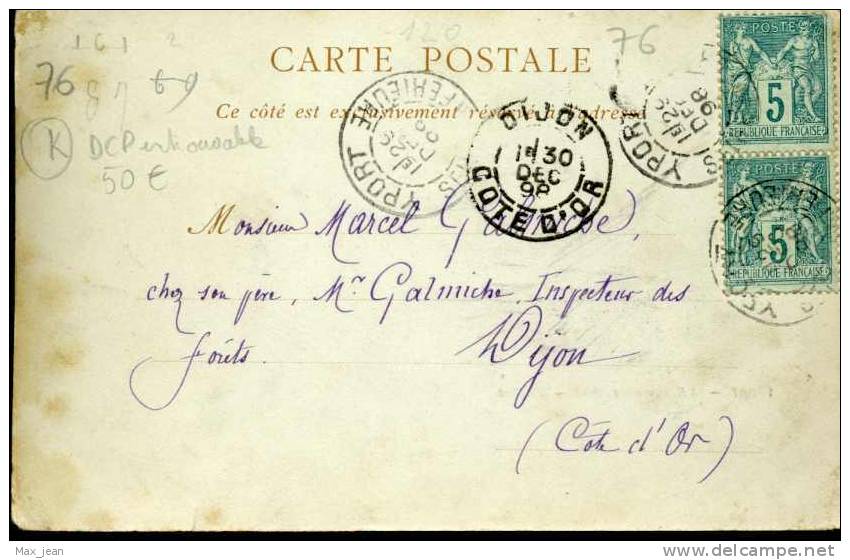 161 2
120
76
76
87 69
K
DCP
50 €
CARTE POSTALE
Ce côté est exclusivement réservé à l'adresse
POSTE
5
REPUBLIQUE FRANÇAISE
POSTE
5
REPUBLIQUE FRANÇAISE
YPORT
28
DEC
98
DIJON
30
DEC
98
COTE D'OR
YPORT
28
DEC
98
Monsieur Marcel Galmiche,
chez son père, Mr Galmiche, Inspecteur des
forêts. Dijon
(Côte d'Or)
Max_jean
delcampe.net